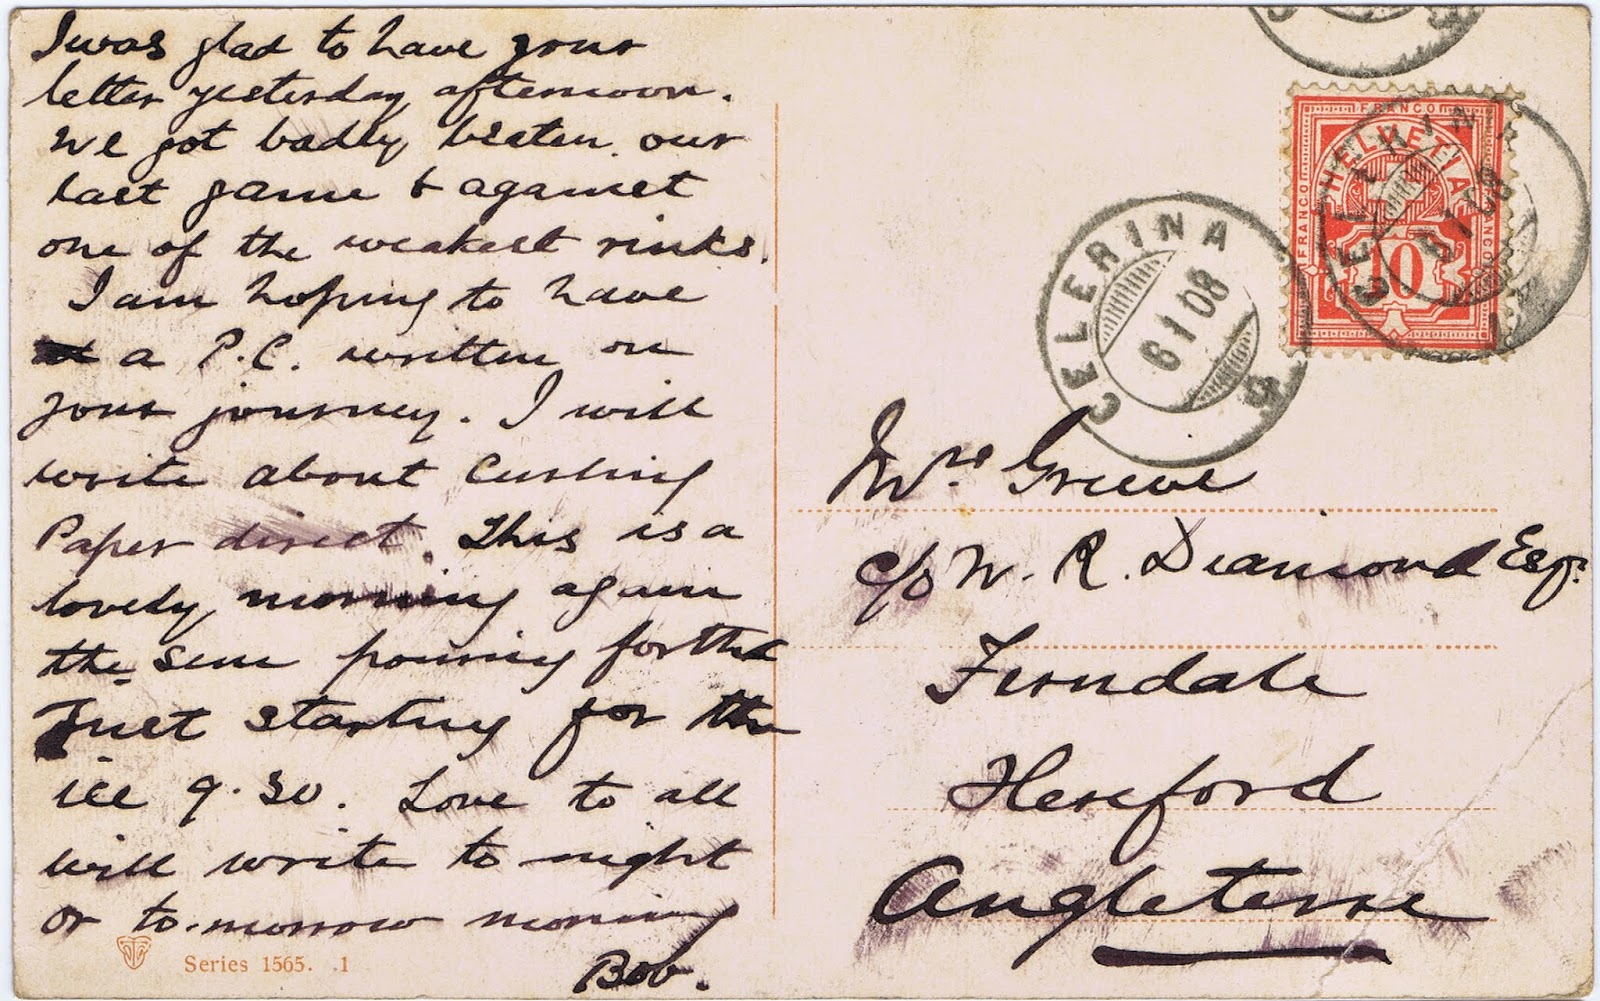 I was glad to have your
letter yesterday afternoon.
We got badly beaten our
last game & against
one of the weakest rinks.
I am hoping to have
a P.C. written on
your journey. I will
write about Curling
Paper direct. This is a
lovely morning again
the sun pouring forth
Just starting for the
ice 9.30. Love to all
will write to night
or to-morrow morning
Bob.
Series 1565. 1
FRANCO
HELVETIA
FRANCO
FRANCO
10
CELERINA
6 I 08
CELERINA
6 I 08
Mrs Grieve
c/o W. R. Diamond Esq.
Ferndale
Hereford
Angleterre